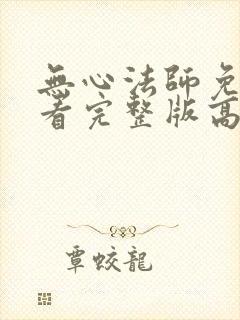 無心法師免
看完整版高
覃蛟龍